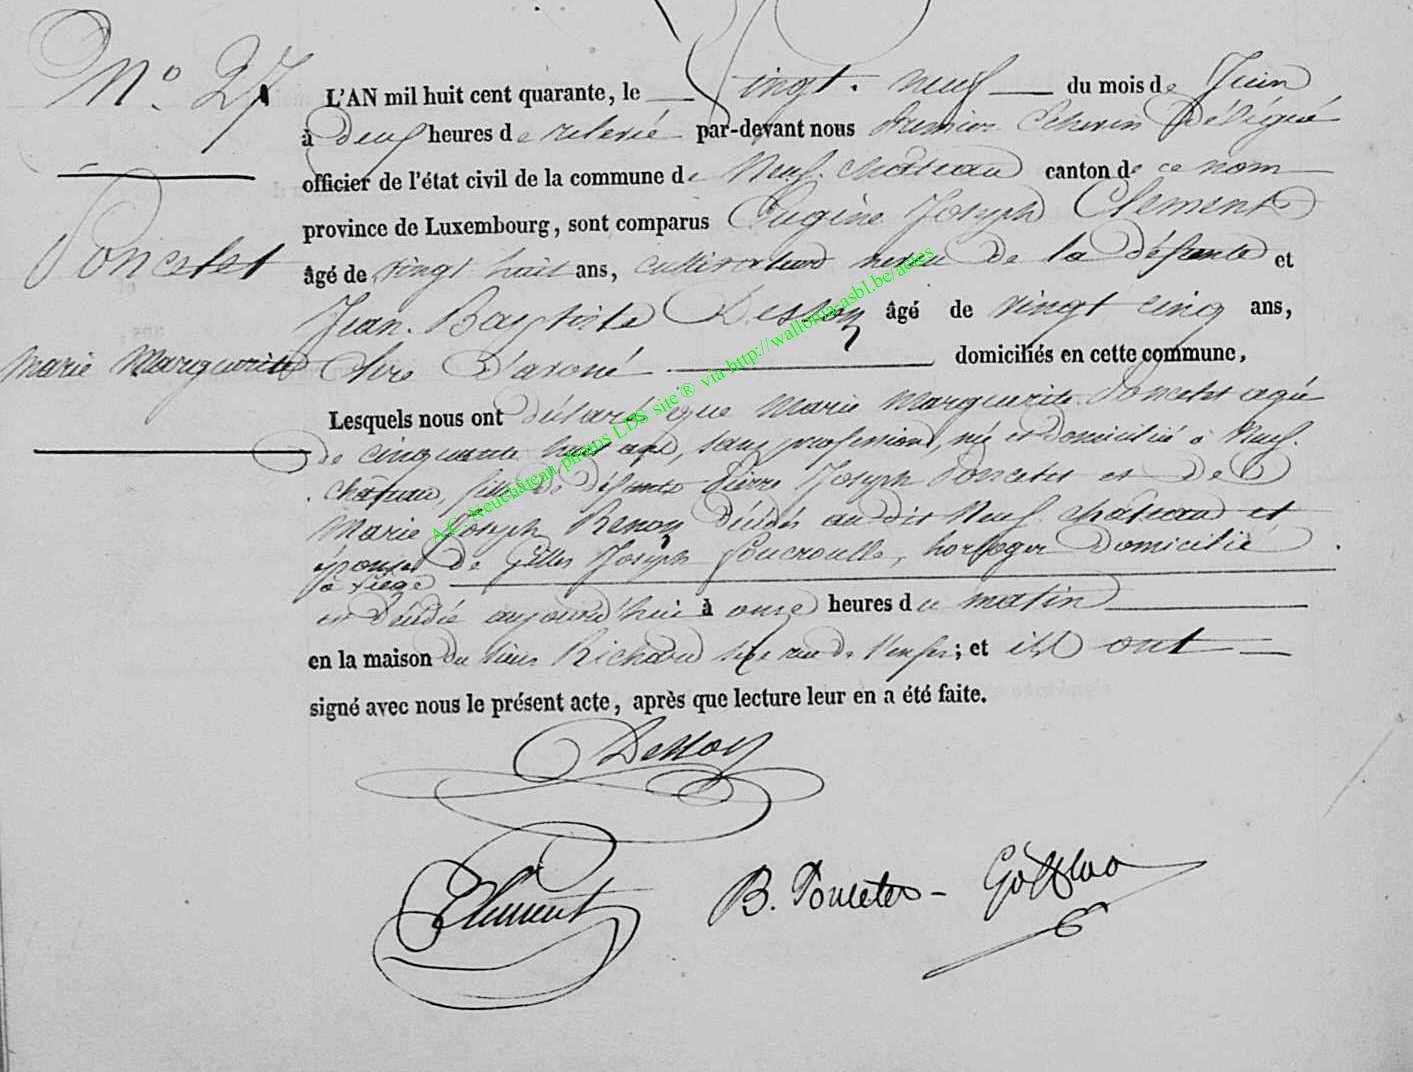 N° 27
Poncelet
Marie Marguerite
L'AN mil huit cent quarante, le Vingt-neuf du mois de Juin
à deux heures de relevé par-devant nous Premier Echevin Délégué
officier de l'état civil de la commune de Neufchâteau canton de ce nom
province de Luxembourg, sont comparus Eugène Joseph Clement
âgé de vingt huit ans, cultivateur neveu de la défunte et
Jean-Baptiste Dessoy âgé de vingt cinq ans,
clerc d'avoué domiciliés en cette commune,
Lesquels nous ont déclaré que Marie Marguerite Poncelet agée
de cinquante huit ans, sans profession, née et domiciliée à Neuf-
château, fille de défunts Pierre Joseph Poncelet et de
Marie Joseph Renoy décédés au dit Neufchâteau et
épouse de Gilles Joseph Foucroulle, horloger domicilié
à Liége
est décédée aujourd'hui à onze heures du matin
en la maison du sieur Richard sise rue de l'enfer; et ils ont
signé avec nous le présent acte, après que lecture leur en a été faite.
Dessoy
Clement B. Poncelet
A.E. Neuchâteau photos LDS site® via http://wallonia-asbl.be/actes